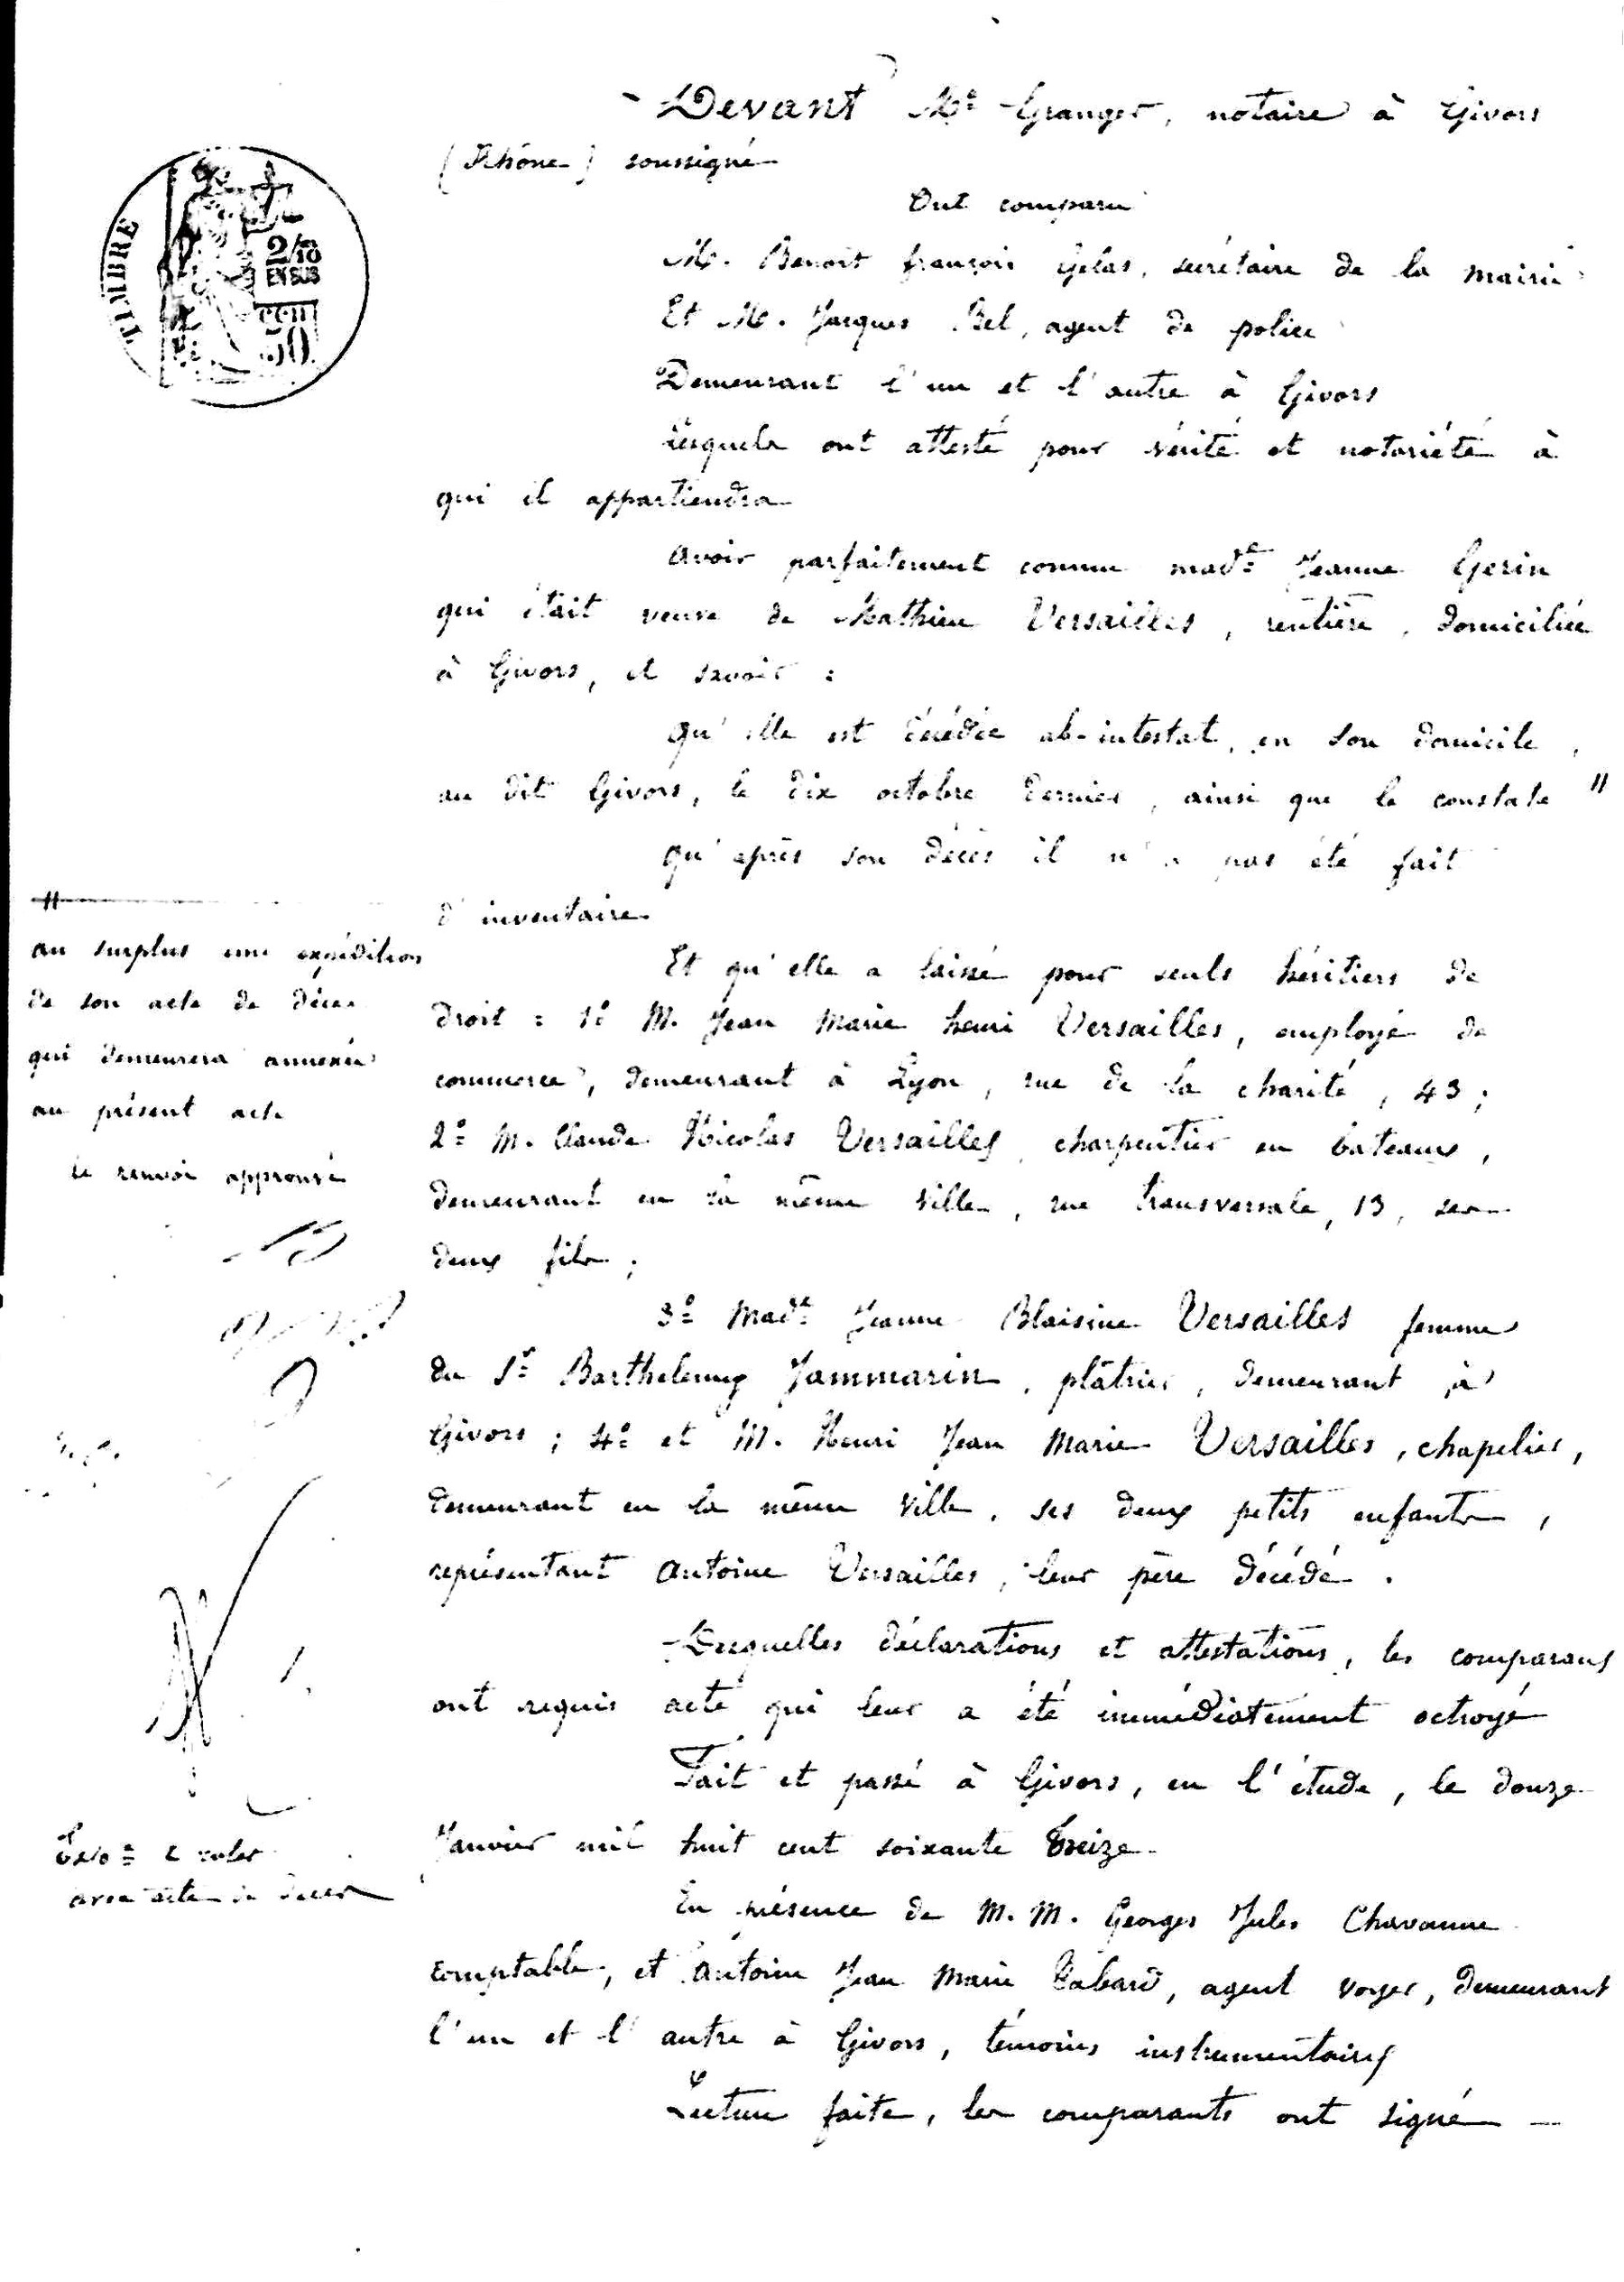 Devant Me Granger, notaire à Givors
(Rhône) soussigné
Ont comparu
M. Benoit françois Gelas, secrétaire de la mairie
Et M. Jacques Bel, agent de police
Demeurant l'un et l'autre à Givors
Lesquels ont attesté pour vérité et notoriété à
qui il appartiendra
avoir parfaitement connu made Jeanne Gerin
qui était veuve de Mathieu Versailles, rentière, domiciliée
à Givors, et savoir :
qu'elle est décédée ab-intestat, en son domicile,
au dit Givors, le dix octobre dernier, ainsi que le constate //
qu'après son décès il n'a pas été fait
d'inventaire
Et qu'elle a laissé pour seuls héritiers de
droit : 1o M. Jean Marie henri Versailles, employé de
commerce, demeurant à Lyon, rue de la charité, 43 ;
2o M. Claude Nicolas Versailles, charpentier en bateaux,
demeurant en la même ville, rue transversale, 13, ses
deux fils ;
3o Made Jeanne Blaisine Versailles femme
du Sr Barthelemy Jammarin, plâtrier, demeurant à
Givors ; 4o et M. Henri Jean Marie Versailles, chapelier,
demeurant en la même ville, ses deux petits enfants,
représentant Antoine Versailles, leur père décédé.
Desquelles déclarations et attestations, les comparans
ont requis acte qui leur a été immédiatement octroyé
Fait et passé à Givors, en l'étude, le douze
Janvier mil huit cent soixante treize
En présence de M. M. Georges Jules Chavanne
comptable, et Antoine Jean Marie Tabard, agent voyer, demeurant
l'un et l'autre à Givors, témoins instrumentaires
Lecture faite, les comparants ont signé —
//
au surplus une expédition
de son acte de décès
qui demeurera annexée
au présent acte
le renvoi approuvé
avec acte de décès
TIMBRE
2/10
EN SUS
50